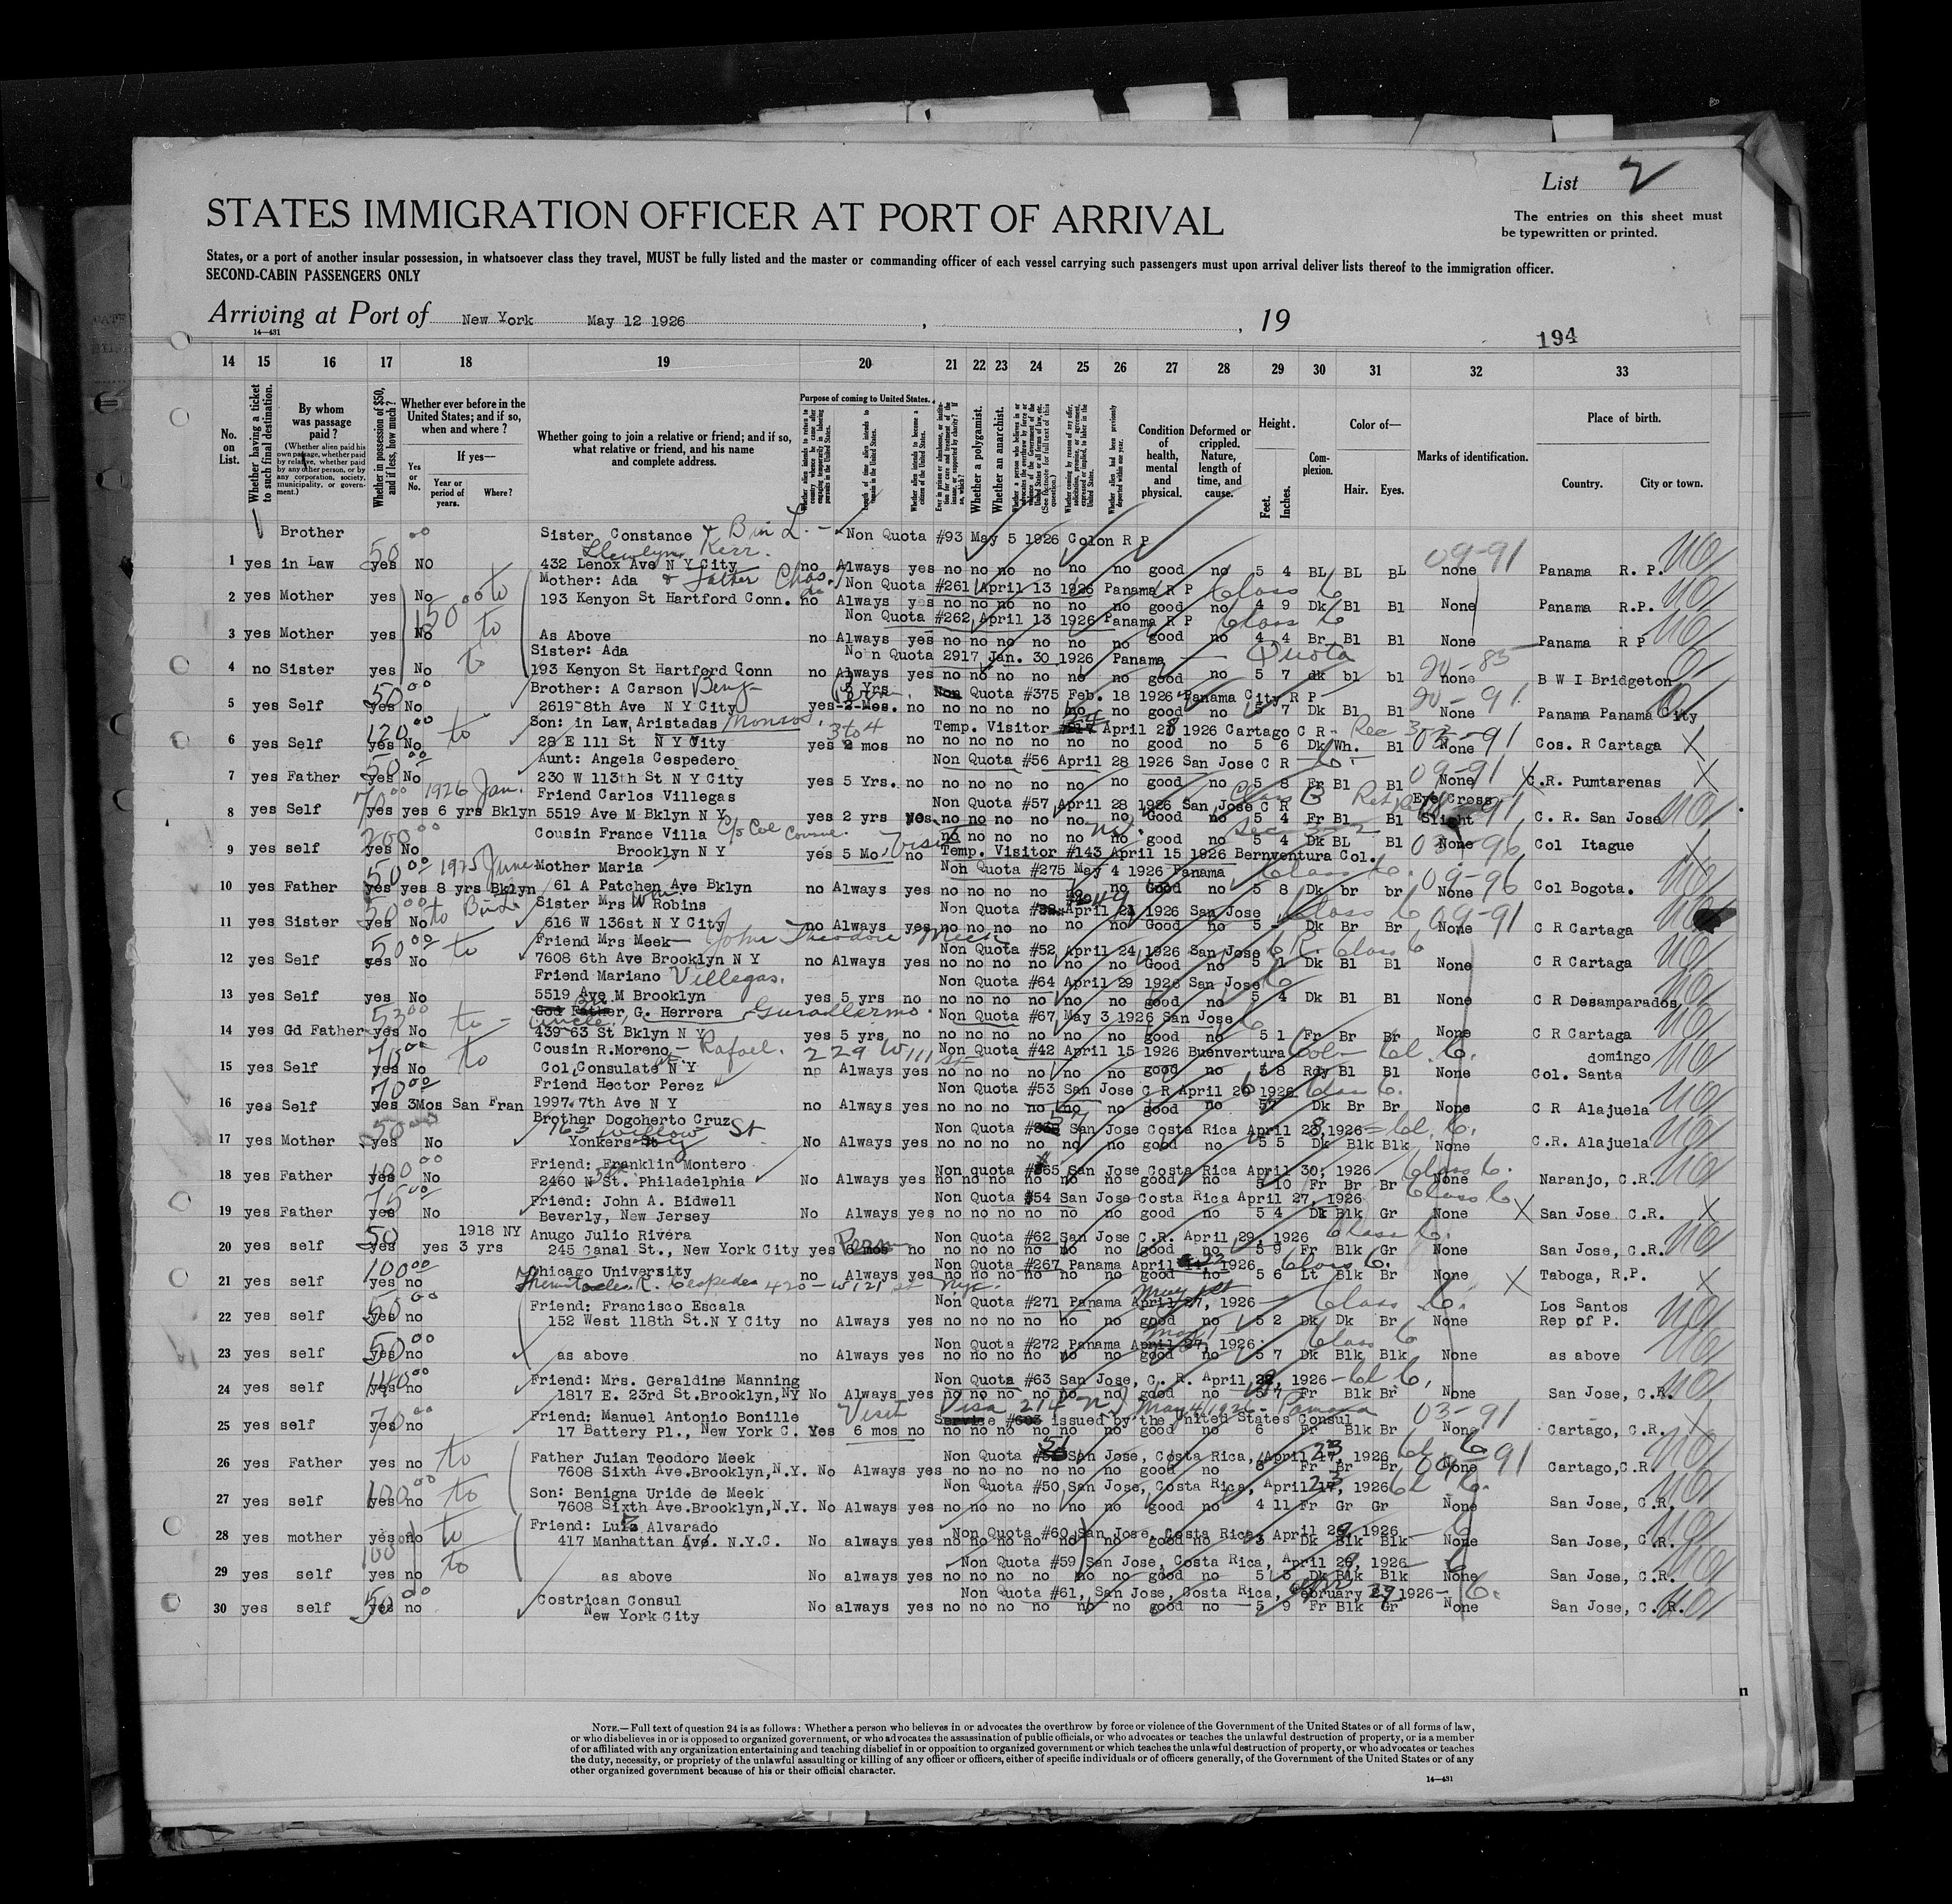 List 2
STATES IMMIGRATION OFFICER AT PORT OF ARRIVAL
The entries on this sheet must
be typewritten or printed.
States, or a port of another insular possession, in whatsoever class they travel, MUST be fully listed and the master or commanding officer of each vessel carrying such passengers must upon arrival deliver lists thereof to the immigration officer.
SECOND-CABIN PASSENGERS ONLY
Arriving at Port of New York May 12 1926 , , 19
14—431
194
14 15 16 17 18 19 20 21 22 23 24 25 26 27 28 29 30 31 32 33
No. on List.
Whether having a ticket to such final destination.
By whom was passage paid?
(Whether alien paid his own passage, whether paid by relative, whether paid by any other person, or by any corporation, society, municipality, or government.)
Whether in possession of $50, and if less, how much?
Whether ever before in the United States; and if so, when and where?
Yes or No.
If yes—
Year or period of years.
Where?
Whether going to join a relative or friend; and if so, what relative or friend, and his name and complete address.
Purpose of coming to United States.
Length of time alien intends to remain in the United States.
Whether a polygamist.
Whether an anarchist.
Condition of health, mental and physical.
Deformed or crippled. Nature, length of time, and cause.
Height.
Feet. Inches.
Complexion.
Color of—
Hair. Eyes.
Marks of identification.
Place of birth.
Country. City or town.
Brother Sister Constance & B in L. Non Quota #93 May 5 1926 Colon R P
Llewlyn Kerr. 09-91
1 yes in Law 50 yes NO 432 Lenox Ave N Y City no Always yes no no no no no no good no 5 4 BL BL BL none Panama R. P.
Mother: Ada & father Chas. Non Quota #261 April 13 1926 Panama R P Class 6
2 yes Mother yes No 193 Kenyon St Hartford Conn. no Always yes no no no no no no good no 4 9 Dk Bl Bl None Panama R.P.
150.00 to Non Quota #262 April 13 1926 Panama R P Class 6
3 yes Mother yes No to As Above no Always yes no no no no no no good no 4 4 Br Bl Bl None Panama R P
Sister: Ada Non Quota 2917 Jan. 30 1926 Panama — Quota 20-85
4 no Sister yes No to 193 Kenyon St Hartford Conn no Always yes no no no no no no good no 5 7 dk bl bl none B W I Bridgeton
Brother: A Carson Benj Yrs Non Quota #375 Feb. 18 1926 Panama City R P 20-91
5 yes Self 50 00 yes No 2619-8th Ave N Y City yes 2 Mos. no no no no no no no good no 5 7 Dk Bl Bl None Panama Panama City
Son: in Law, Aristadas Monsos. 3 to 4 Temp. Visitor April 28 1926 Cartago C R - 03-91
6 yes Self 120 00 yes No to 28 E 111 St N Y City yes 2 mos no no no no no no no good no 5 6 Dk Wh. Bl None Cos. R Cartaga X
Aunt: Angela Cespedero Non Quota #56 April 28 1926 San Jose C R - 6 - 09-91
7 yes Father 50 00 yes No 230 W 113th St N Y City yes 5 Yrs. no no no no no no no good no 5 8 Fr Bl Bl None X C.R. Pumtarenas X
1926 Jan. Friend Carlos Villegas Non Quota #57 April 28 1926 San Jose C R Eye Cross
8 yes Self 70 00 yes yes 6 yrs Bklyn 5519 Ave M Bklyn N Y yes 2 yrs no no no no no no no Good no 5 4 Fr Bl Bl Slight C. R. San Jose
Cousin France Villa c/o Col Consul.
9 yes self 200 00 yes No Brooklyn N Y yes 5 Mo Visit no no no no no no no good no 5 4 Dk BL Bl None 03-96 Col Itague X
Temp. Visitor #143 April 15 1926 Bernventura Col.
1925 June Mother Maria Non Quota #275 May 4 1926 Panama Class 6. 09-96
10 yes Father 50 00 yes yes 8 yrs Bklyn 61 A Patchen Ave Bklyn no Always yes no no no no no no Good no 5 8 Dk br br None Col Bogota.
Sister Mrs Wm Robins Non Quota April 24 1926 San Jose Class 6 09-91
11 yes Sister 50 00 yes No to B in L 616 W 136st N Y City no Always yes no no no no no no Good no 5 - Dk Br Br None C R Cartaga
Friend Mrs Meek — John Theodore Meek Non Quota #52 April 24 1926 San Jose C R. Class 6
12 yes Self 50 00 yes No to 7608 6th Ave Brooklyn N Y no Always yes no no no no no no Good no 5 1 Dk Bl Bl None C R Cartaga
Friend Mariano Villegas. Non Quota #64 April 29 1926 San Jose 6
13 yes Self yes No 5519 Ave M Brooklyn yes 5 yrs no no no no no no no good no 5 4 Dk Bl Bl None C R Desamparados
God Father, G. Herrera Non Quota #67 May 3 1926 San Jose 6
Uncle
14 yes Gd Father 53 00 yes No to 439 63 St Bklyn N Y yes 5 yrs no no no no no no no good no 5 1 Fr Br Br None C R Cartaga
Cousin R.Moreno - Rafael. 229 W 111 St Non Quota #42 April 15 1926 Buenvertura Col - Cl 6. domingo
15 yes Self yes No to Col, Consulate at N Y no Always yes no no no no no no good no 5 8 Rdy Bl Bl None Col. Santa
Friend Hector Perez Non Quota #53 San Jose C R April 26 1926 Class 6.
16 yes Self 70 00 yes 3Mos San Fran 1997 7th Ave N Y no Always yes no no no no no no good no 5 7 Dk Br Br None C R Alajuela
Brother Dogoherto Cruz Non Quota San Jose Costa Rica April 28 1926 = Cl. 6.
763 Willow St
17 yes Mother yes No Yonkers No Always yes no no no no no no good no 5 5 Dk Blk Blk None C.R. Alajuela
Friend: Franklin Montero Non quota San Jose Costa Rica April 30, 1926 Class 6.
18 yes Father 100 00 yes No 2460 N 5th St. Philadelphia No Always yes no no no no no no good no 5 10 Fr Br Br None Naranjo, C.R.
Friend: John A. Bidwell Non Quota #54 San Jose Costa Rica April 27, 1926 Class 6
19 yes Father 75 00 yes No Beverly, New Jersey No Always yes no no no no no no good no 5 4 Dk Blk Gr None X San Jose C.R. X
1918 NY Anugo Julio Rivera Non Quota #62 San Jose C.R. April 29, 1926 Class 6.
20 yes self 50 yes yes 3 yrs 245 Canal St., New York City yes 6 mos no no no no no no no good no 5 9 Fr Blk Gr None San Jose, C.R.
Chicago University Non Quota #267 Panama April 1926 Class 6.
21 yes self 100 00 yes no R. Cespedes 420 - W 121 st NYC no Always yes no no no no no no good no 5 6 Lt Blk Br None X Taboga, R.P. X
Friend: Francisco Escala Non Quota #271 Panama April 27, 1926 May 1st Class 6. Los Santos
22 yes self 50 00 yes no 152 West 118th St.N Y City no Always yes no no no no no no good no 5 2 Dk Dk Br None Rep of P.
Non Quota #272 Panama April 27, 1926 May 1 Class 6
23 yes self 50 00 yes no as above no Always yes no no no no no no good no 5 7 Dk Blk Blk None as above
Friend: Mrs. Geraldine Manning Non Quota #63 San Jose, C. R. April 28, 1926 - Cl 6.
24 yes self 140 00 yes no 1817 E. 23rd St.Brooklyn,NY No Always yes no no no no no no good no 5 7 Fr Blk Br None San Jose, C.R.
Friend: Manuel Antonio Bonille Visit Visa 214 May 4/1926 - Panama 03-91
Service #603 issued by the United States Consul
25 yes self 70 00 yes no 17 Battery Pl., New York C. Yes 6 mos no no no no no no no good no 6 Fr Blk Br None Cartago, C.R. X
Father Juian Teodoro Meek Non Quota #51 San Jose, Costa Rica, April 23, 1926 Cl 6
26 yes Father yes no to 7608 Sixth Ave.Brooklyn,N.Y. No Always yes no no no no no no good no 6 Fr Br Br None 09-91 Cartago,C.R.
Son: Benigna Uride de Meek Non Quota #50 San Jose, Costa Rica, April 23, 1926 Cl 6.
27 yes self 100 00 yes no to 7608 Sixth Ave.Brooklyn,N.Y. No Always yes no no no no no no good no 4 11 Fr Gr Gr None San Jose, C.R.
Friend: Luis Alvarado Non Quota #60 San Jose, Costa Rica, April 29, 1926 - 6
28 yes mother yes no to 417 Manhattan Ave. N.Y.C. No always yes no no no no no no good no 3 Dk Blk Blk None San Jose, C.R.
Non Quota #59 San Jose, Costa Rica, April 29, 1926 - 6
29 yes self 100 yes no to as above No always yes no no no no no no good no 5 3 Dk Blk Blk None San Jose, C.R.
Costrican Consul Non Quota #61, San Jose, Costa Rica, February 29 1926 - 6.
30 yes self 50 00 yes no New York City No always yes no no no no no no good no 5 9 Fr Blk Gr None San Jose, C.R.
NOTE.—Full text of question 24 is as follows: Whether a person who believes in or advocates the overthrow by force or violence of the Government of the United States or of all forms of law,
or who disbelieves in or is opposed to organized government, or who advocates the assassination of public officials, or who advocates or teaches the unlawful destruction of property, or is a member
of or affiliated with any organization entertaining and teaching disbelief in or opposition to organized government or which teaches the unlawful destruction of property, or who advocates or teaches
the duty, necessity, or propriety of the unlawful assaulting or killing of any officer or officers, either of specific individuals or of officers generally, of the Government of the United States or of any
other organized government because of his or their official character.
14—431